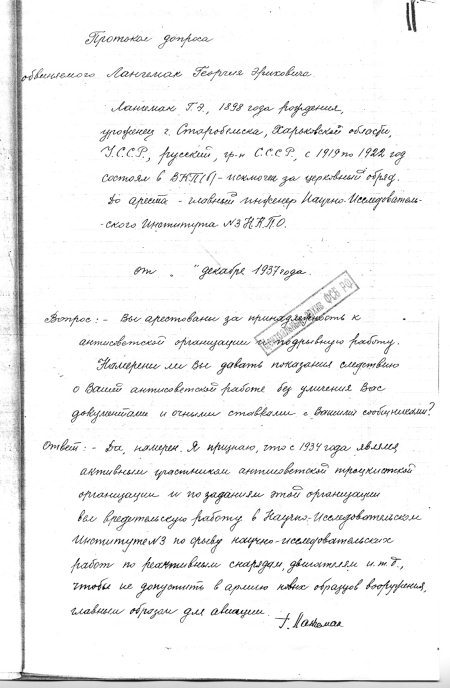 11
Протокол допроса
обвиняемого Лангемак Георгия Эриховича
Лангемак Г.Э., 1898 года рождения,
уроженец г. Старобельска, Харьковской области,
У.С.С.Р., русский, гр-н С.С.С.Р., с 1919 по 1922 год
состоял в ВКП(б) - исключен за церковный обряд.
До ареста - главный инженер Научно-Исследователь-
-ского Института №3 НКПО.
от „ " декабря 1937 года.
ФСБ РФ
Вопрос: - Вы арестованы за принадлежность к
антисоветской организации и подрывную работу.
Намерены ли Вы давать показания следствию
о Вашей антисоветской работе без уличения Вас
документами и очными ставками с Вашими сообщниками?
Ответ: - Да, намерен. Я признаю, что с 1934 года являлся
активным участником антисоветской троцкистской
организации и по заданиям этой организации
вел вредительскую работу в Научно-Исследовательском
Институте №3 по срыву научно-исследовательских
работ по реактивным снарядам, двигателям и т.д.,
чтобы не допустить в армию новых образцов вооружения,
главным образом для авиации.
Г. Лангемак